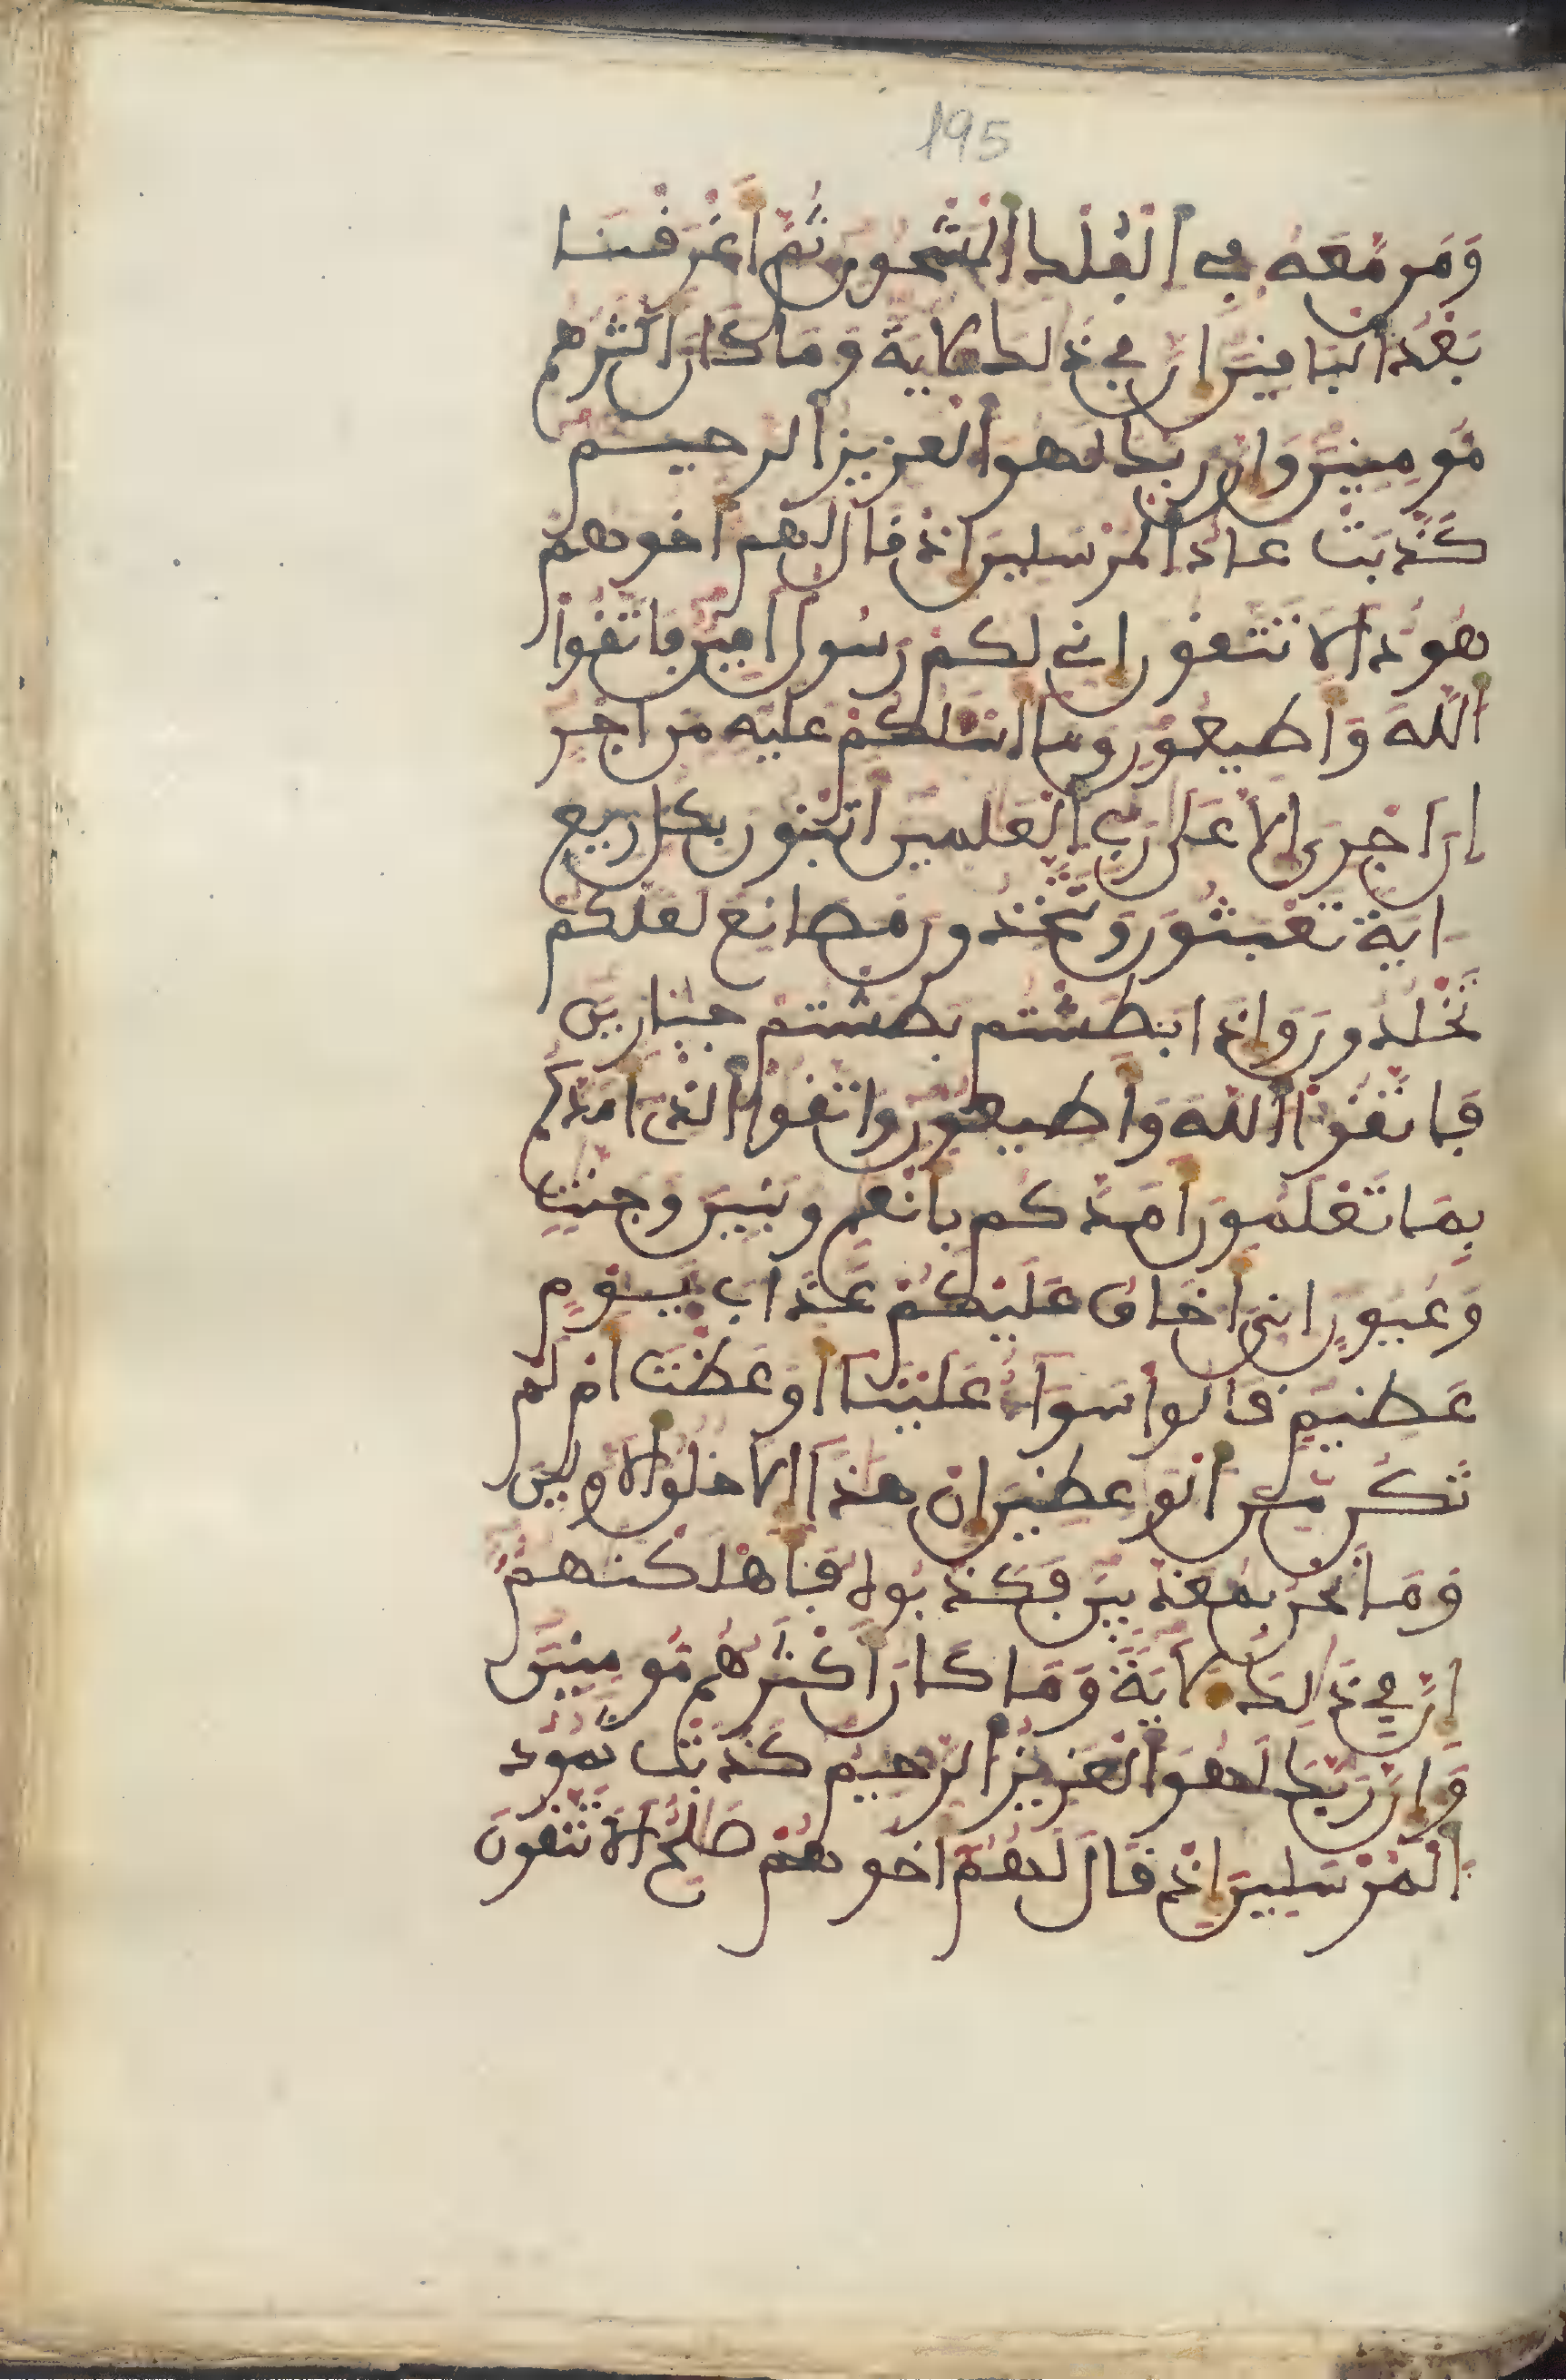 195
وَمَن مَّعَهُ فِي الْفُلْكِ الْمَشْحُونِ ثُمَّ أَغْرَقْنَا
بَعْدُ الْبَاقِينَ إِنَّ فِي ذَٰلِكَ لَآيَةً وَمَا كَانَ أَكْثَرُهُم
مُّومِنِينَ وَإِنَّ رَبَّكَ لَهُوَ الْعَزِيزُ الرَّحِيمُ
كَذَّبَتْ عَادٌ الْمُرْسَلِينَ إِذْ قَالَ لَهُمْ أَخُوهُمْ
هُودٌ أَلَا تَتَّقُونَ إِنِّي لَكُمْ رَسُولٌ أَمِينٌ فَاتَّقُوا
اللَّهَ وَأَطِيعُونِ وَمَا أَسْـَٔلُكُمْ عَلَيْهِ مِنْ أَجْرٍ
إِنْ أَجْرِيَ إِلَّا عَلَىٰ رَبِّ الْعَٰلَمِينَ أَتَبْنُونَ بِكُلِّ رِيعٍ
ءَايَةً تَعْبَثُونَ وَتَتَّخِذُونَ مَصَانِعَ لَعَلَّكُمْ
تَخْلُدُونَ وَإِذَا بَطَشْتُم بَطَشْتُمْ جَبَّارِينَ
فَاتَّقُوا اللَّهَ وَأَطِيعُونِ وَاتَّقُوا الَّذِي أَمَدَّكُم
بِمَا تَعْلَمُونَ أَمَدَّكُم بِأَنْعَٰمٍ وَبَنِينَ وَجَنَّٰتٍ
وَعُيُونٍ إِنِّيَ أَخَافُ عَلَيْكُمْ عَذَابَ يَوْمٍ
عَظِيمٍ قَالُوا سَوَاءٌ عَلَيْنَا أَوَعَظْتَ أَمْ لَمْ
تَكُن مِّنَ الْوَٰعِظِينَ إِنْ هَٰذَا إِلَّا خُلُقُ الْأَوَّلِينَ
وَمَا نَحْنُ بِمُعَذَّبِينَ فَكَذَّبُوهُ فَأَهْلَكْنَٰهُمُ
إِنَّ فِي ذَٰلِكَ لَآيَةً وَمَا كَانَ أَكْثَرُهُم مُّومِنِينَ
وَإِنَّ رَبَّكَ لَهُوَ الْعَزِيزُ الرَّحِيمُ كَذَّبَتْ ثَمُودُ
الْمُرْسَلِينَ إِذْ قَالَ لَهُمْ أَخُوهُمْ صَٰلِحٌ أَلَا تَتَّقُونَ